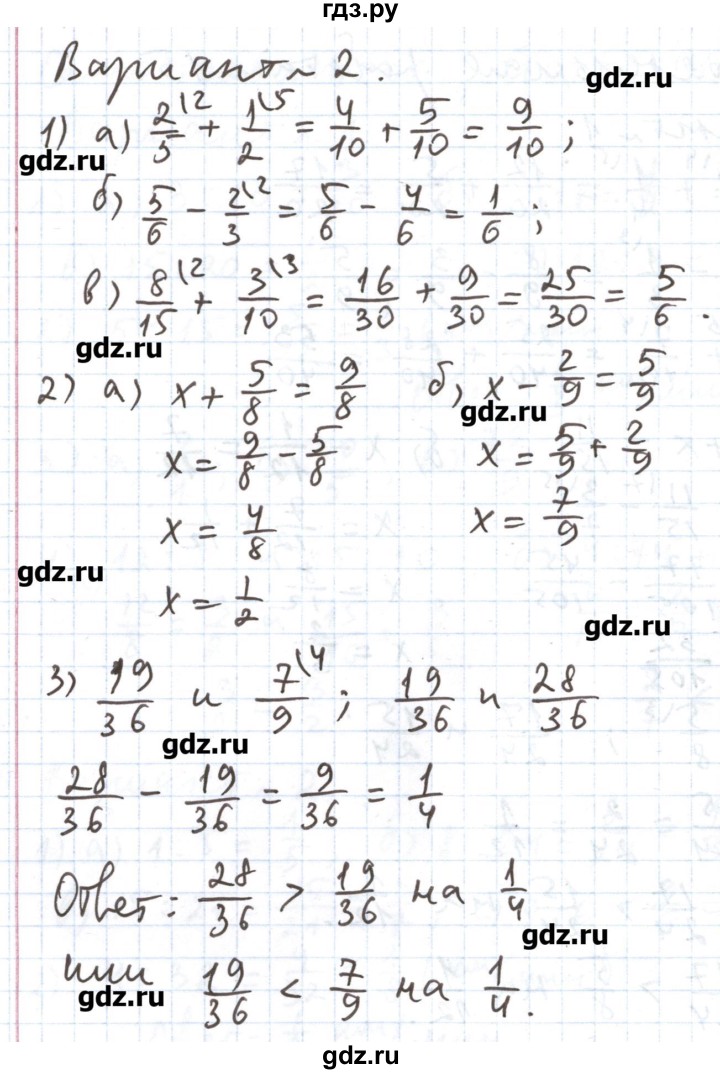 гдз.ру
Вариант 2.
gdz.ru
1) а) 2/5 \2 + 1/2 \5 = 4/10 + 5/10 = 9/10 ;
gdz.ru
б) 5/6 - 2/3 \2 = 5/6 - 4/6 = 1/6 ;
в) 8/15 \2 + 3/10 \3 = 16/30 + 9/30 = 25/30 = 5/6 .
gdz.ru
2) а) x + 5/8 = 9/8 б) x - 2/9 = 5/9
gdz.ru
x = 9/8 - 5/8 x = 5/9 + 2/9
x = 4/8 x = 7/9
gdz.ru
x = 1/2
gdz.ru
3) 19/36 и 7/9 \4 ; 19/36 и 28/36
gdz.ru
28/36 - 19/36 = 9/36 = 1/4
Ответ: 28/36 > 19/36 на 1/4
gdz.ru
или 19/36 < 7/9 на 1/4 .
gdz.ru
gdz.ru